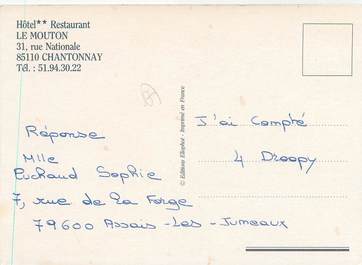 Hôtel** Restaurant
LE MOUTON
31, rue Nationale
85110 CHANTONNAY
Tél : 51.94.30.22
© Editions Ellophot - Imprimé en France
J'ai Compté
4 Droopy
Réponse
Mlle
Puchaud Sophie
7, rue de la Forge
79600 Assais-Les-Jumeaux